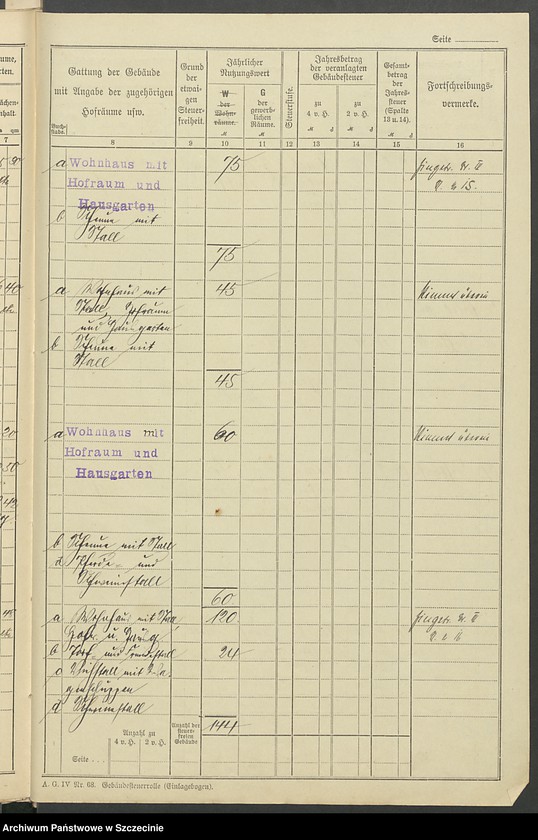 Seite
Gattung der Gebäude
mit Angabe der zugehörigen
Hofräume usw.
Buch-
stabe.
Grund
der
etwai-
gen
Steuer-
freiheit.
Jährlicher
Nutzungswert
W
der
Wohn-
räume.
M
G
der
gewerb-
lichen
Räume.
M
Steuerstufe.
Jahresbetrag
der veranlagten
Gebäudesteuer
zu
4 v. H.
zu
2 v. H.
Gesamt-
betrag
der
Jahres-
steuer
(Spalte
13 u. 14).
Fortschreibungs-
vermerke.
7 8 9 10 11 12 13 14 15 16
a Wohnhaus mit 75
Hofraum und
Hausgarten
b Scheune mit
Stall
75
a Wohnhaus mit 45
Stall, Hofraum
und Hausgarten
b Scheune mit
Stall
45
a Wohnhaus mit 60
Hofraum und
Hausgarten
b Scheune mit Stall
d Pferde- und
Schweinstall
60
a Wohnhaus mit Stall, 120
Hofr. u. Hausg.
b 24
c Viehstall mit Wa-
genschuppen
d Schweinstall
144
Anzahl zu
4 v. H. 2 v. H.
Anzahl der
steuer-
freien
Gebäude
Seite
A. G. IV Nr. 68. Gebäudesteuerrolle (Einlagebogen).
Archiwum Państwowe w Szczecinie